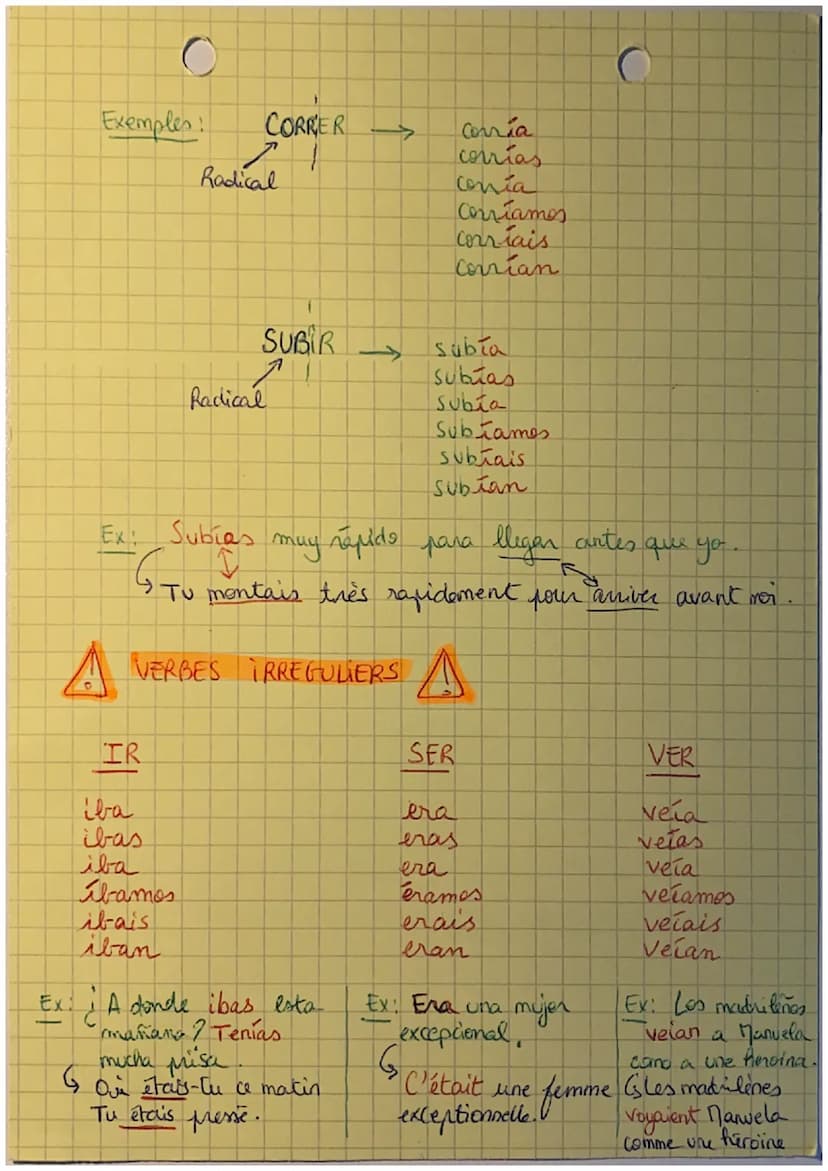 Exemples : CORRER → corría
Radical
corrías
corría
corríamos
corríais
corrían
SUBIR → subía
Radical
subías
subía
subíamos
subíais
subían
Ex: Subías muy rápido para llegar antes que yo.
Tu montais très rapidement pour arriver avant moi.
VERBES IRREGULIERS
IR SER VER
iba era veía
ibas eras veías
iba era veía
íbamos éramos veíamos
ibais erais veíais
iban eran veían
Ex: ¿ A donde ibas esta
mañana ? Tenías
mucha prisa.
Où étais-tu ce matin
Tu étais pressé.
Ex: Era una mujer
excepcional.
C'était une femme
exceptionnelle.
Ex: Los madrileños
veían a Manuela
como a une heroina.
Les madrilènes
voyaient Manuela
comme une héroïne